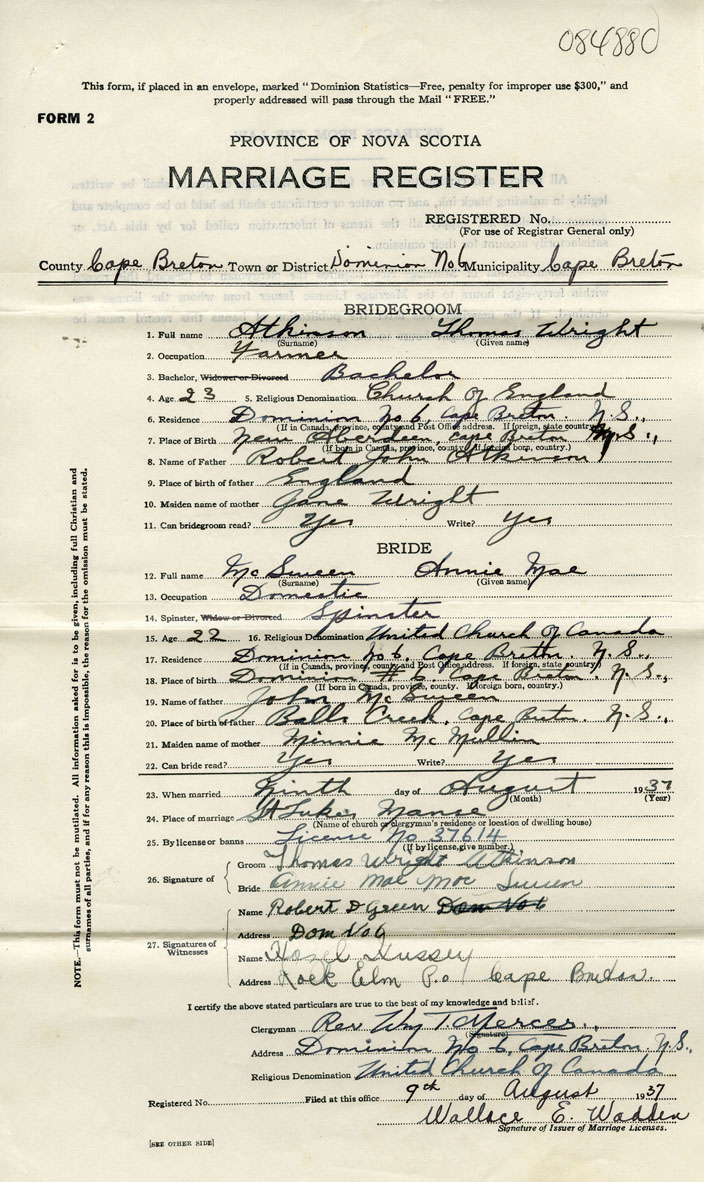 084880
This form, if placed in an envelope, marked "Dominion Statistics—Free, penalty for improper use $300," and
properly addressed will pass through the Mail "FREE."
FORM 2
PROVINCE OF NOVA SCOTIA
MARRIAGE REGISTER
REGISTERED No.
(For use of Registrar General only)
County Cape Breton Town or District Dominion No 6 Municipality Cape Breton
BRIDEGROOM
1. Full name Atkinson Thomas Wright
(Surname) (Given name)
2. Occupation Farmer
3. Bachelor, Widower or Divorced Bachelor
4. Age 23 5. Religious Denomination Church Of England
6. Residence Dominion No 6, Cape Breton. N.S.,
(If in Canada, province, county and Post Office address. If foreign, state country)
7. Place of Birth New Aberdeen, Cape Breton N.S.,
(If born in Canada, province, county. If foreign born, country.)
8. Name of Father Robert John Atkinson
9. Place of birth of father England
10. Maiden name of mother Jane Wright
11. Can bridegroom read? Yes Write? Yes
BRIDE
12. Full name Mc Sween Annie Mae
(Surname) (Given name)
13. Occupation Domestic
14. Spinster, Widow or Divorced Spinster
15. Age 22 16. Religious Denomination United Church Of Canada
17. Residence Dominion No 6, Cape Breton. N.S.,
(If in Canada, province, county and Post Office address. If foreign, state country)
18. Place of birth Dominion # 6 Cape Breton. N.S.,
(If born in Canada, province, county. If foreign born, country.)
19. Name of father John McSween
20. Place of birth of father Balls Creek, Cape Breton. N.S.,
21. Maiden name of mother Minnie McMullin
22. Can bride read? Yes Write? Yes
23. When married Ninth day of August 1937
(Month) (Year)
24. Place of marriage St Lukes Manse
(Name of church or clergyman's residence or location of dwelling house)
25. By license or banns License No 37614
(If by license, give number.)
26. Signature of
Groom Thomas Wright Atkinson
Bride Annie Mae Mac Sween
27. Signatures of Witnesses
Name Robert D Green Dom No 6
Address Dom No 6
Name Hazel Hussey
Address Rock Elm P.o Cape Breton.
I certify the above stated particulars are true to the best of my knowledge and belief.
Clergyman Rev. Wm T. Mercer.,
(Signature)
Address Dominion No 6, Cape Breton, N.S.,
Religious Denomination United Church Of Canada
Registered No. Filed at this office 9th day of August 1937
Wallace E. Wadden
Signature of Issuer of Marriage Licenses.
[SEE OTHER SIDE]
NOTE.—This form must not be mutilated. All information asked for is to be given, including full Christian and
surnames of all parties, and if for any reason this is impossible, the reason for the omission must be stated.